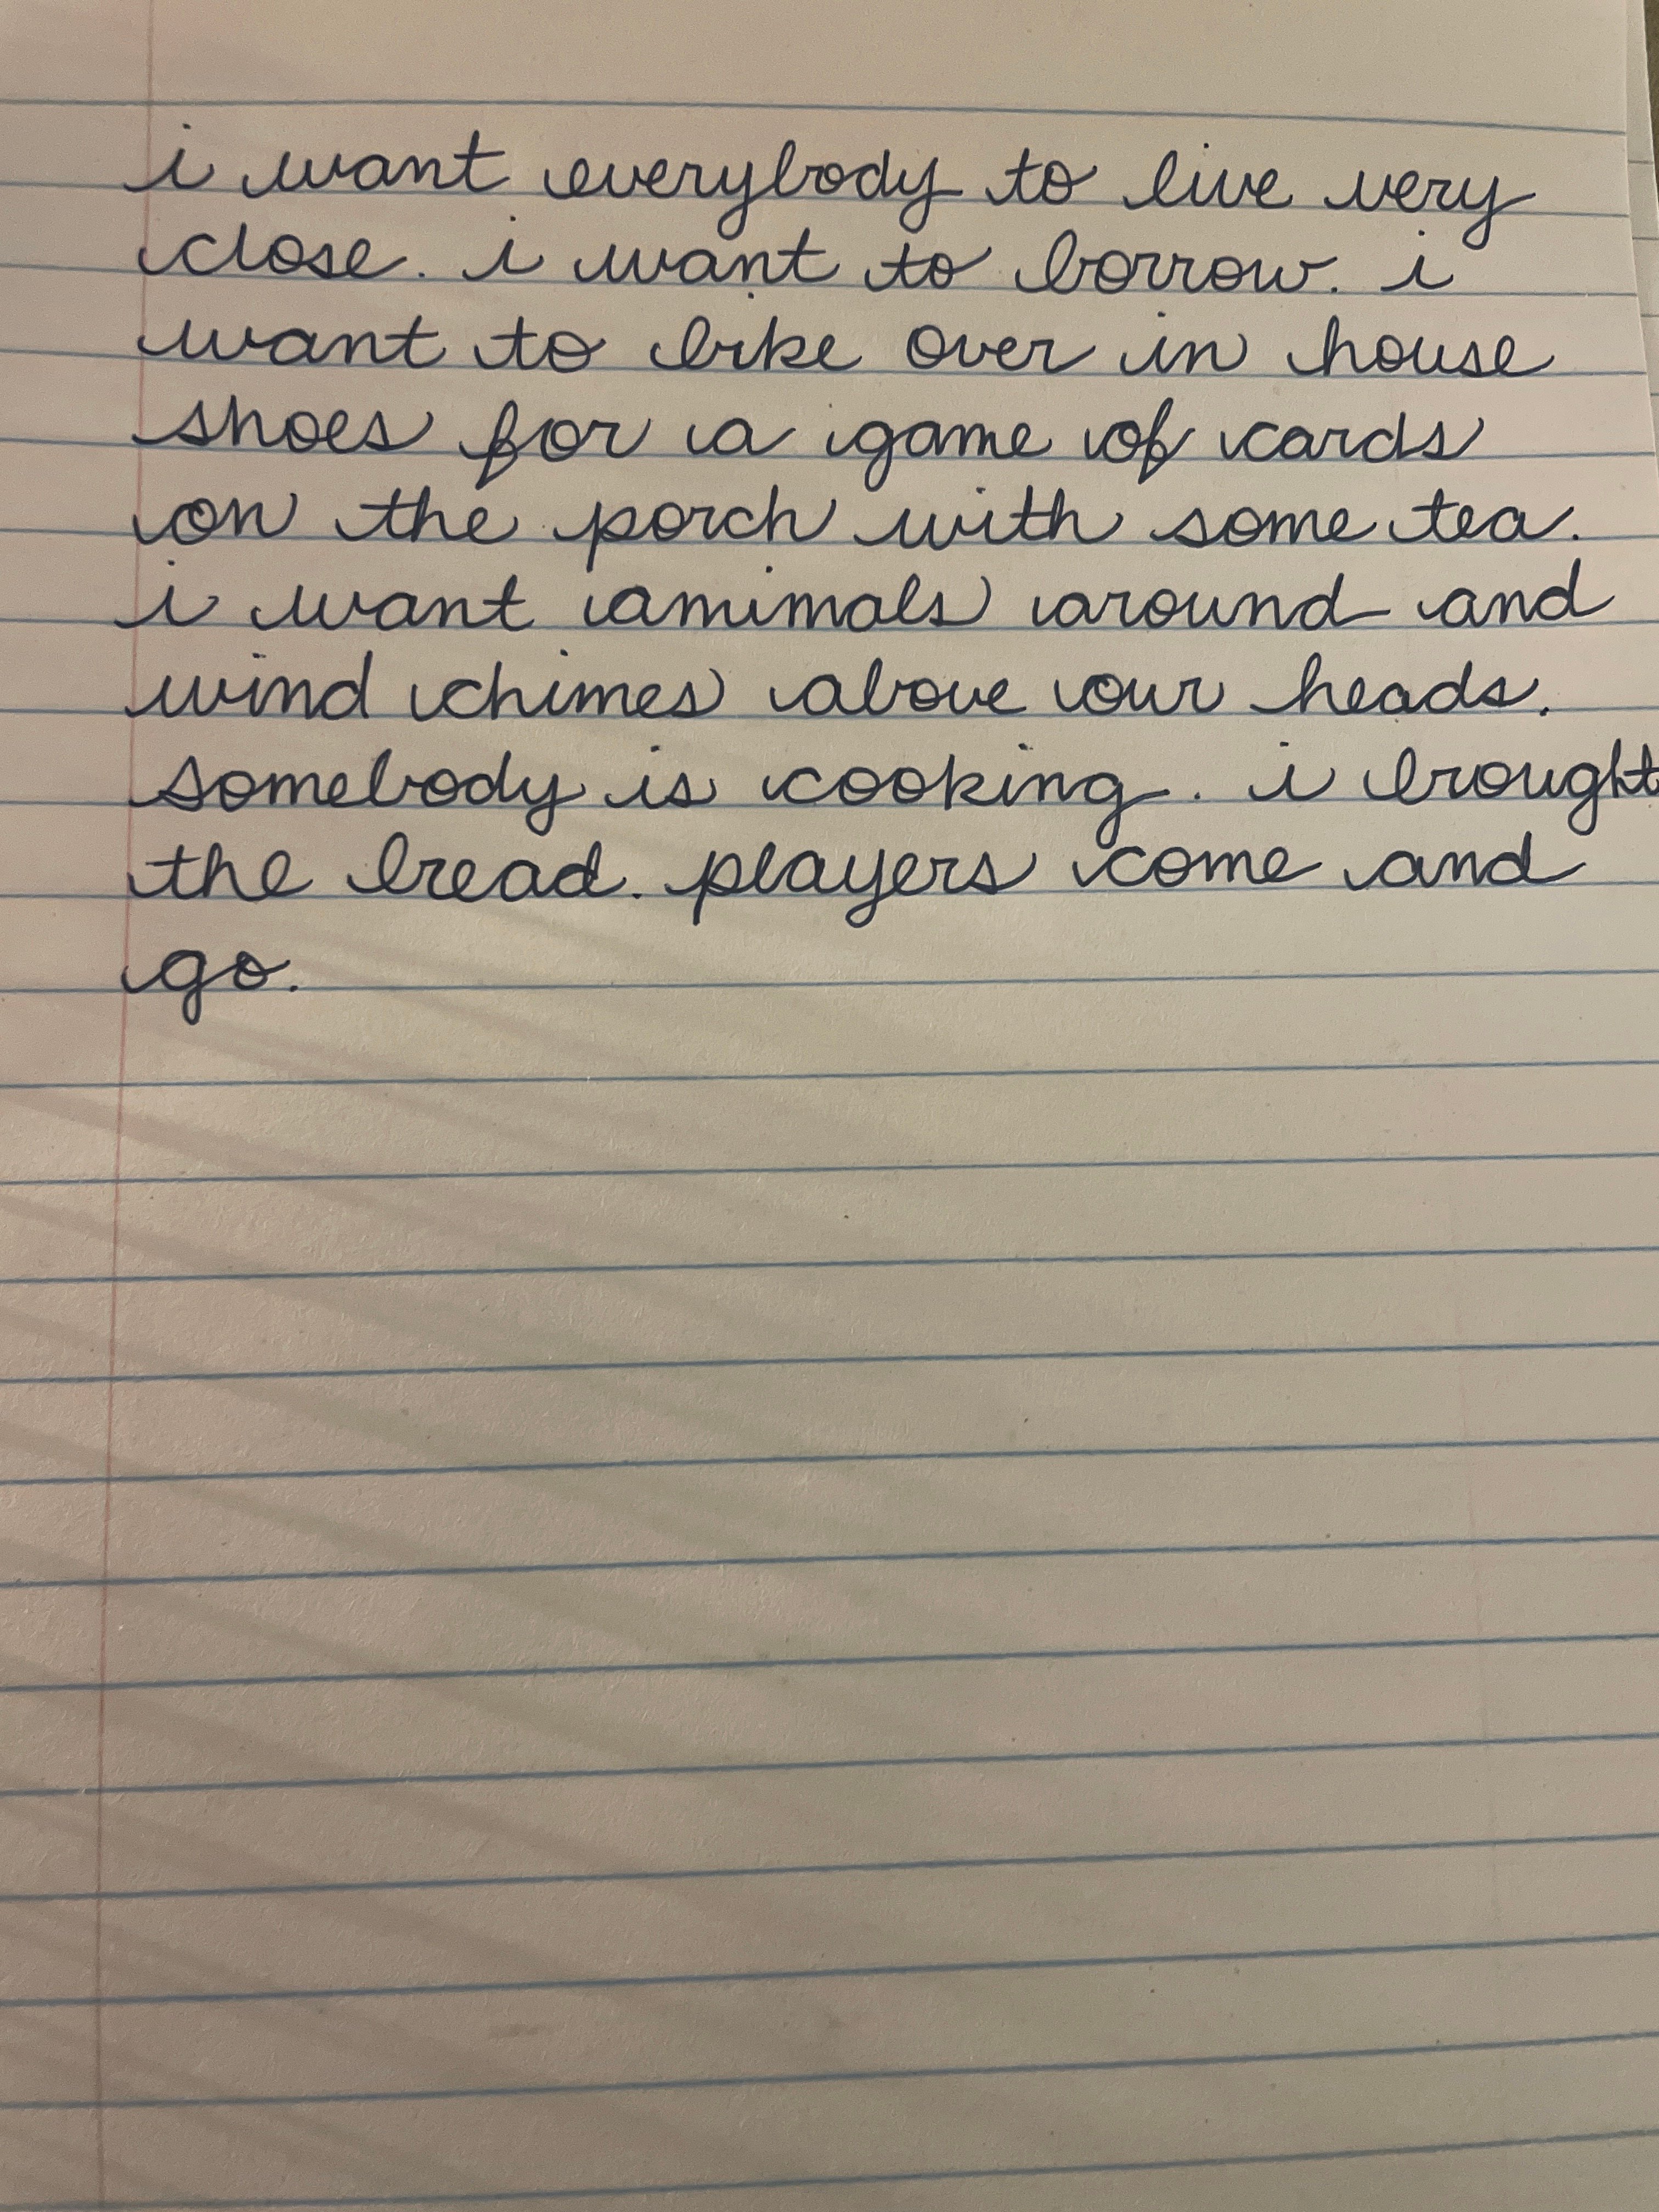 i want everybody to live very
close. i want to borrow. i
want to bike over in house
shoes for a game of cards
on the porch with some tea.
i want animals around and
wind chimes above our heads.
somebody is cooking. i brought
the bread. players come and
go.